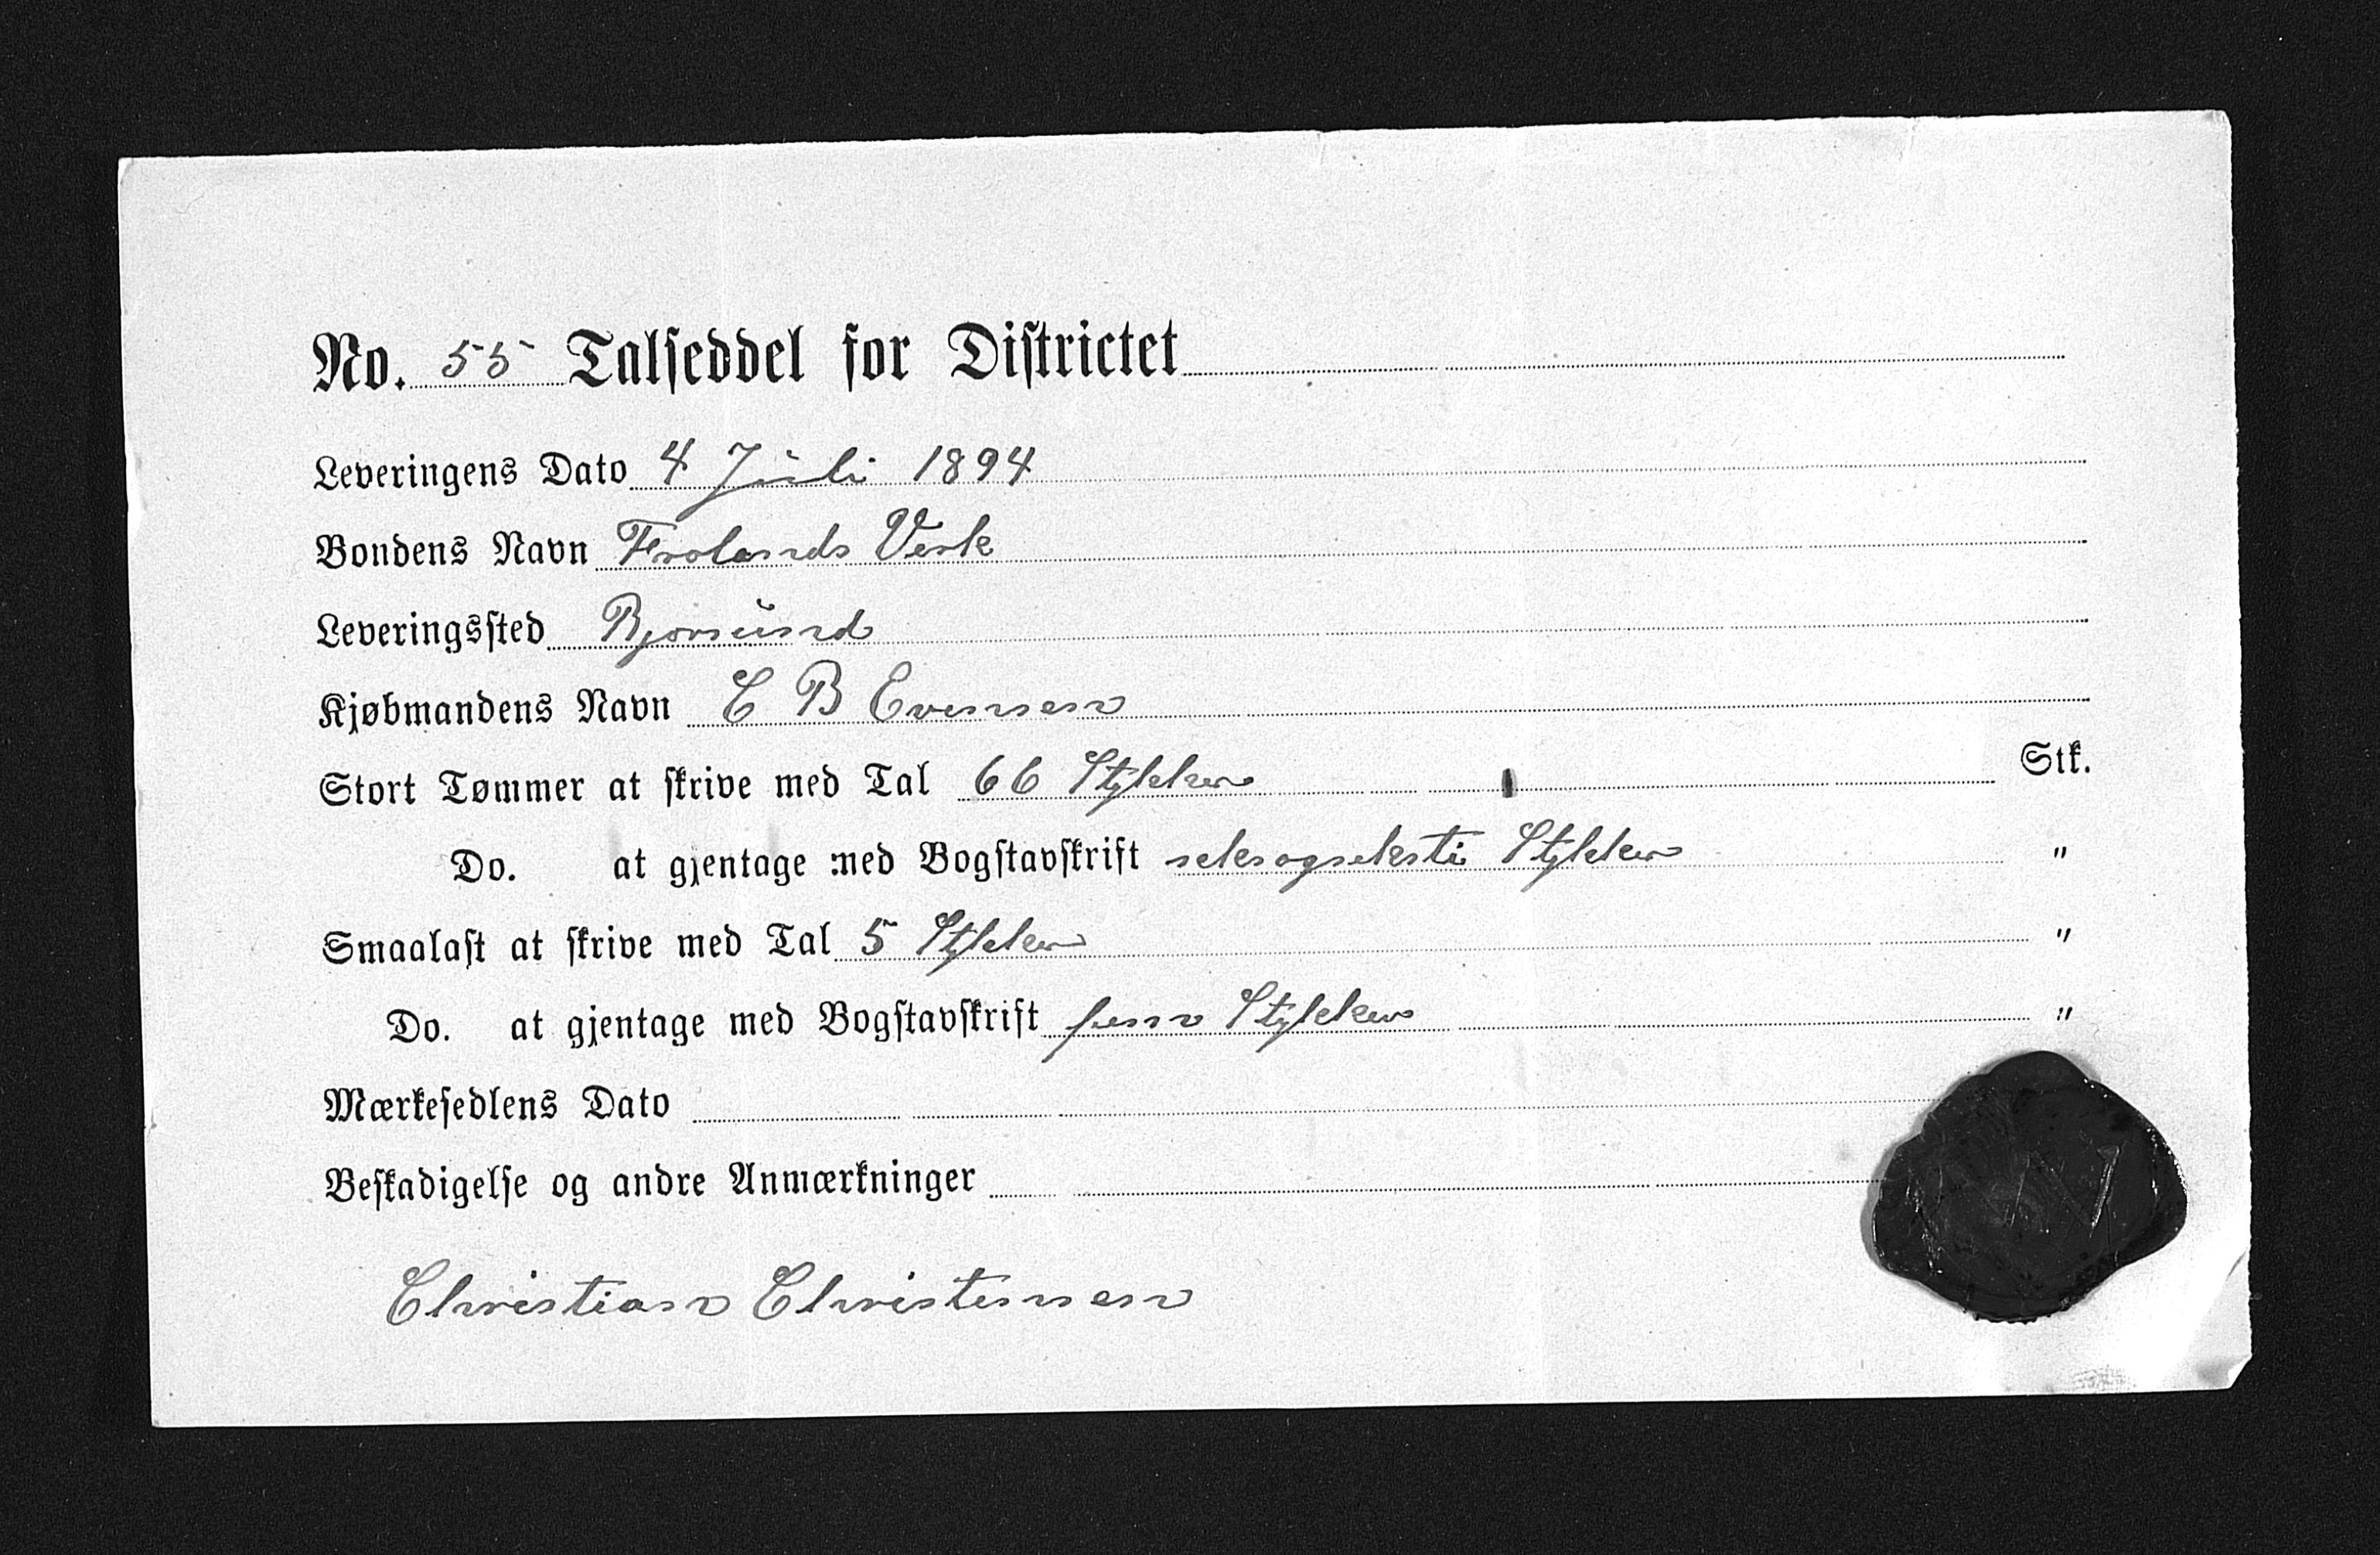 No. 55 Talseddel for Districtet
Leveringens Dato 4 Juli 1894
Bondens Navn Frolands Verk
Leveringssted Bjorsund
Kjøbmandens Navn C B Evensen
Stort Tømmer at skrive med Tal 66 Stykker Stk.
Do. at gjentage med Bogstavskrift seksogseksti Stykker "
Smaalast at skrive med Tal 5 Stykker "
Do. at gjentage med Bogstavskrift fem Stykker "
Mærkesedlens Dato
Beskadigelse og andre Anmærkninger
Christian Christensen